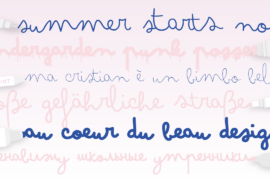 summer starts no
ndergarden punk posse
ma cristian è un bimbo bel
oße gefährliche straße
au coeur du beau desig
ненавижу школьные утренники